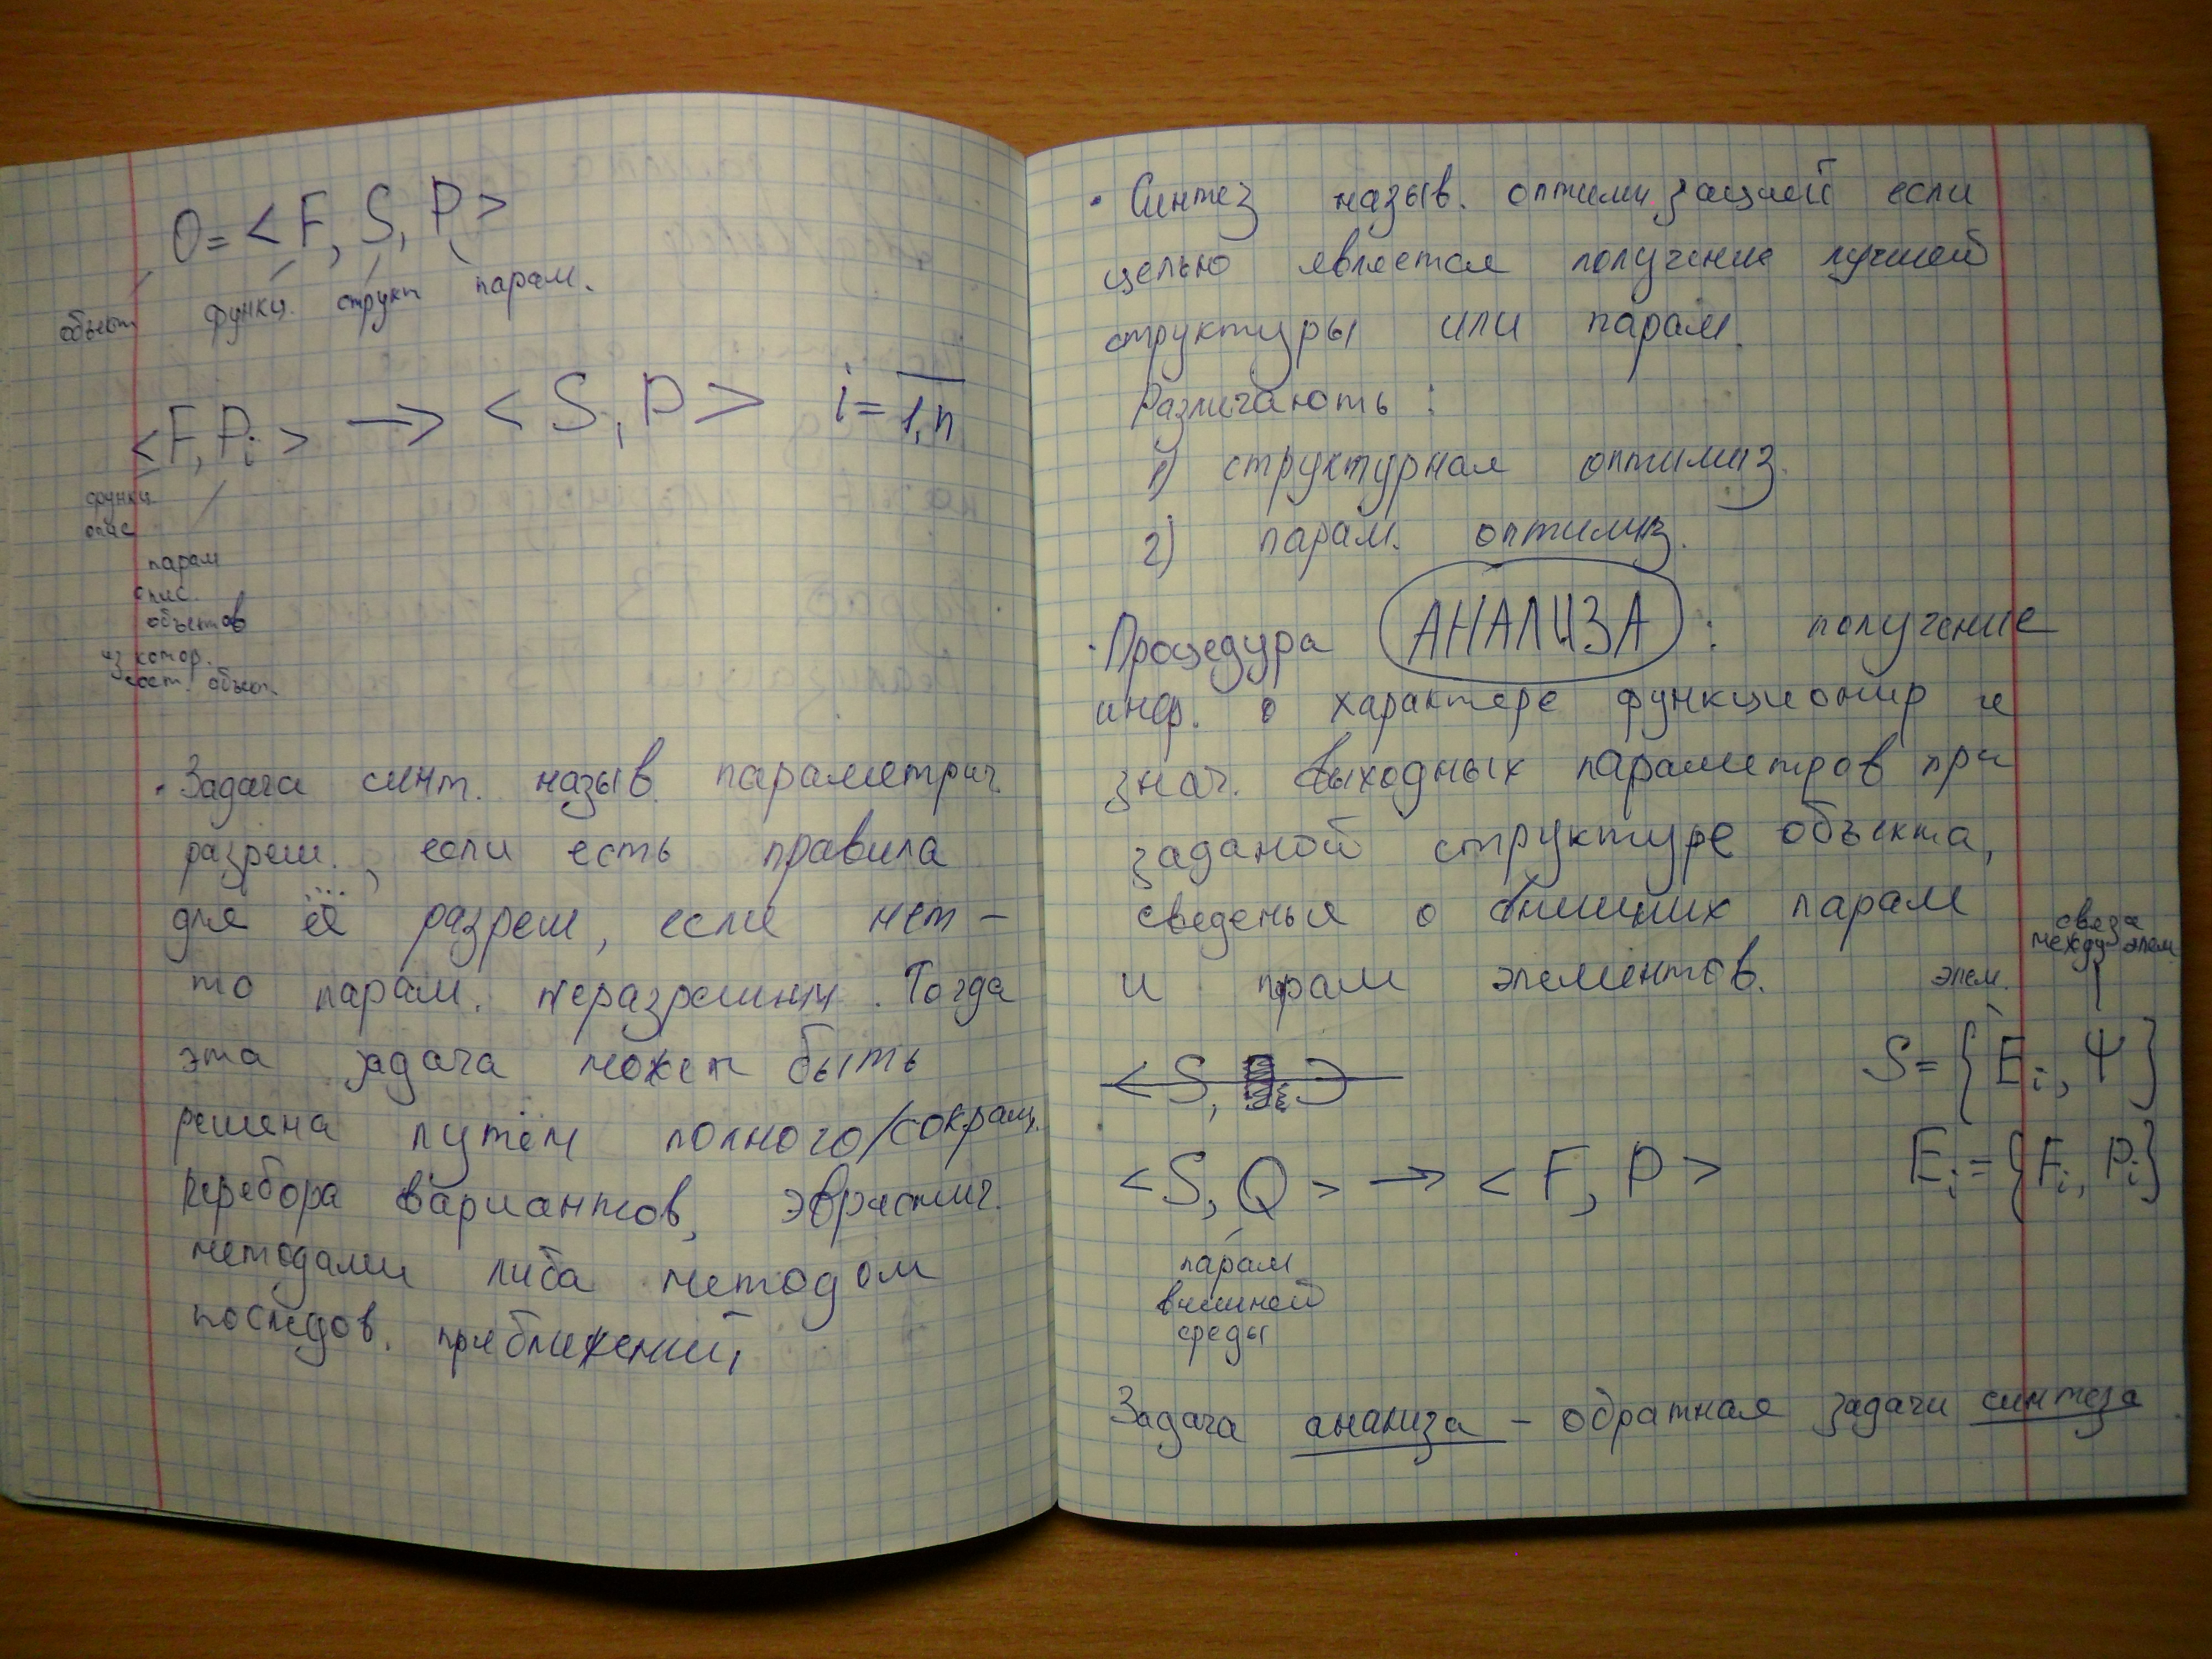 O = < F, S, P >
объект функц. структ парам.
<F, Pi> → < S, P > i = 1, n
функц.
опис
парам
опис.
объектов
из котор.
сост. объект.
· Задача синт. назыв. параметрич.
разреш., если есть правила
для её разреш, если нет –
то парам. неразрешим. Тогда
эта задача может быть
решена путём полного/сокращ.
перебора вариантов, эвристич.
методами либа методом
последов. приближений,
· Синтез назыв. оптимизацией если
целью является получение лучшей
структуры или парам.
Различають :
1) структурная оптимиз.
2) парам. оптимиз.
· Процедура АНАЛИЗА : получение
инф. о характере функционир и
знач. выходных параметров при
заданой структуре объекта,
сведенья о внешних парам
и прам элементов.
связь
между элем.
элем.
< S, Э
S = { Ei, Ψ }
< S, Q > → < F, P >
Ei = { Fi, Pi }
парам
внешней
среды
Задача анализа – обратная задачи синтеза